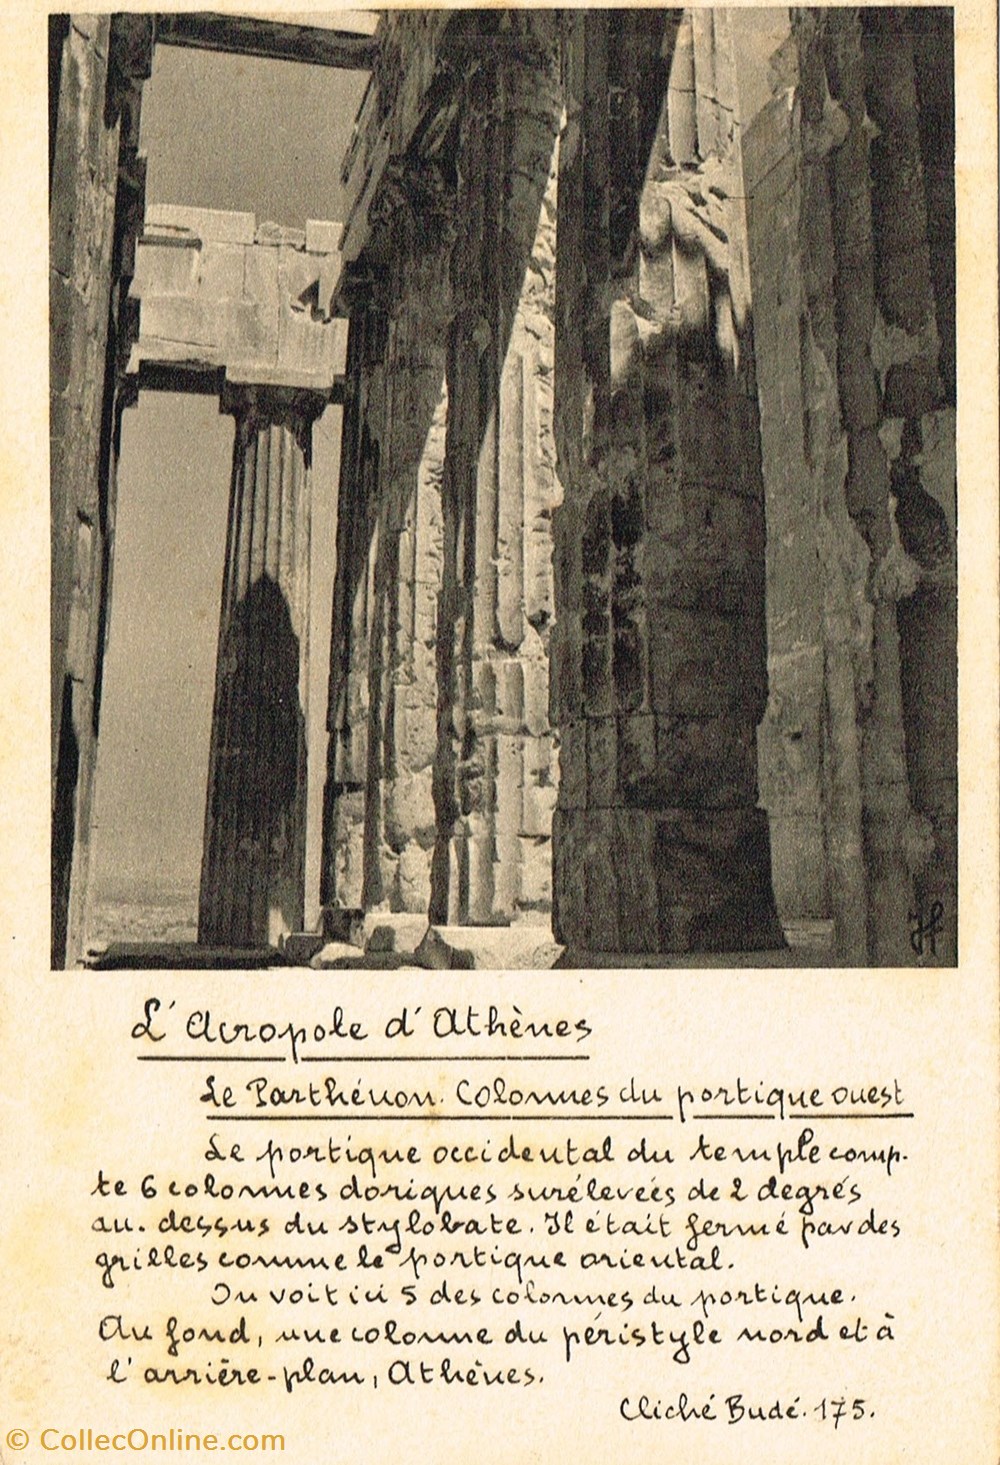 Jf
L'Acropole d'Athènes
Le Parthénon. Colonnes du portique ouest
Le portique occidental du temple comp-
te 6 colonnes doriques surélevées de 2 degrés
au-dessus du stylobate. Il était fermé par des
grilles comme le portique oriental.
On voit ici 5 des colonnes du portique.
Au fond, une colonne du péristyle nord et à
l'arrière-plan, Athènes.
Cliché Budé. 175.
© CollecOnline.com